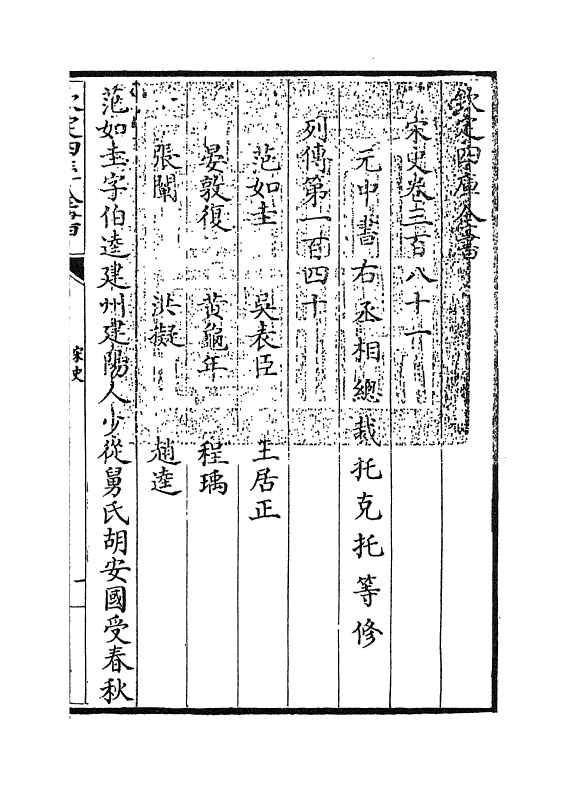 欽定四庫全書
宋史卷三百八十一
元中書右丞相總裁托克托等修
列傳第一百四十
范如圭 吳表臣 王居正
晏敦復 黃龜年 程瑀
張闡 洪擬 趙逵
范如圭字伯逵建州建陽人少從舅氏胡安國受春秋
欽定四庫全書
宋史
一